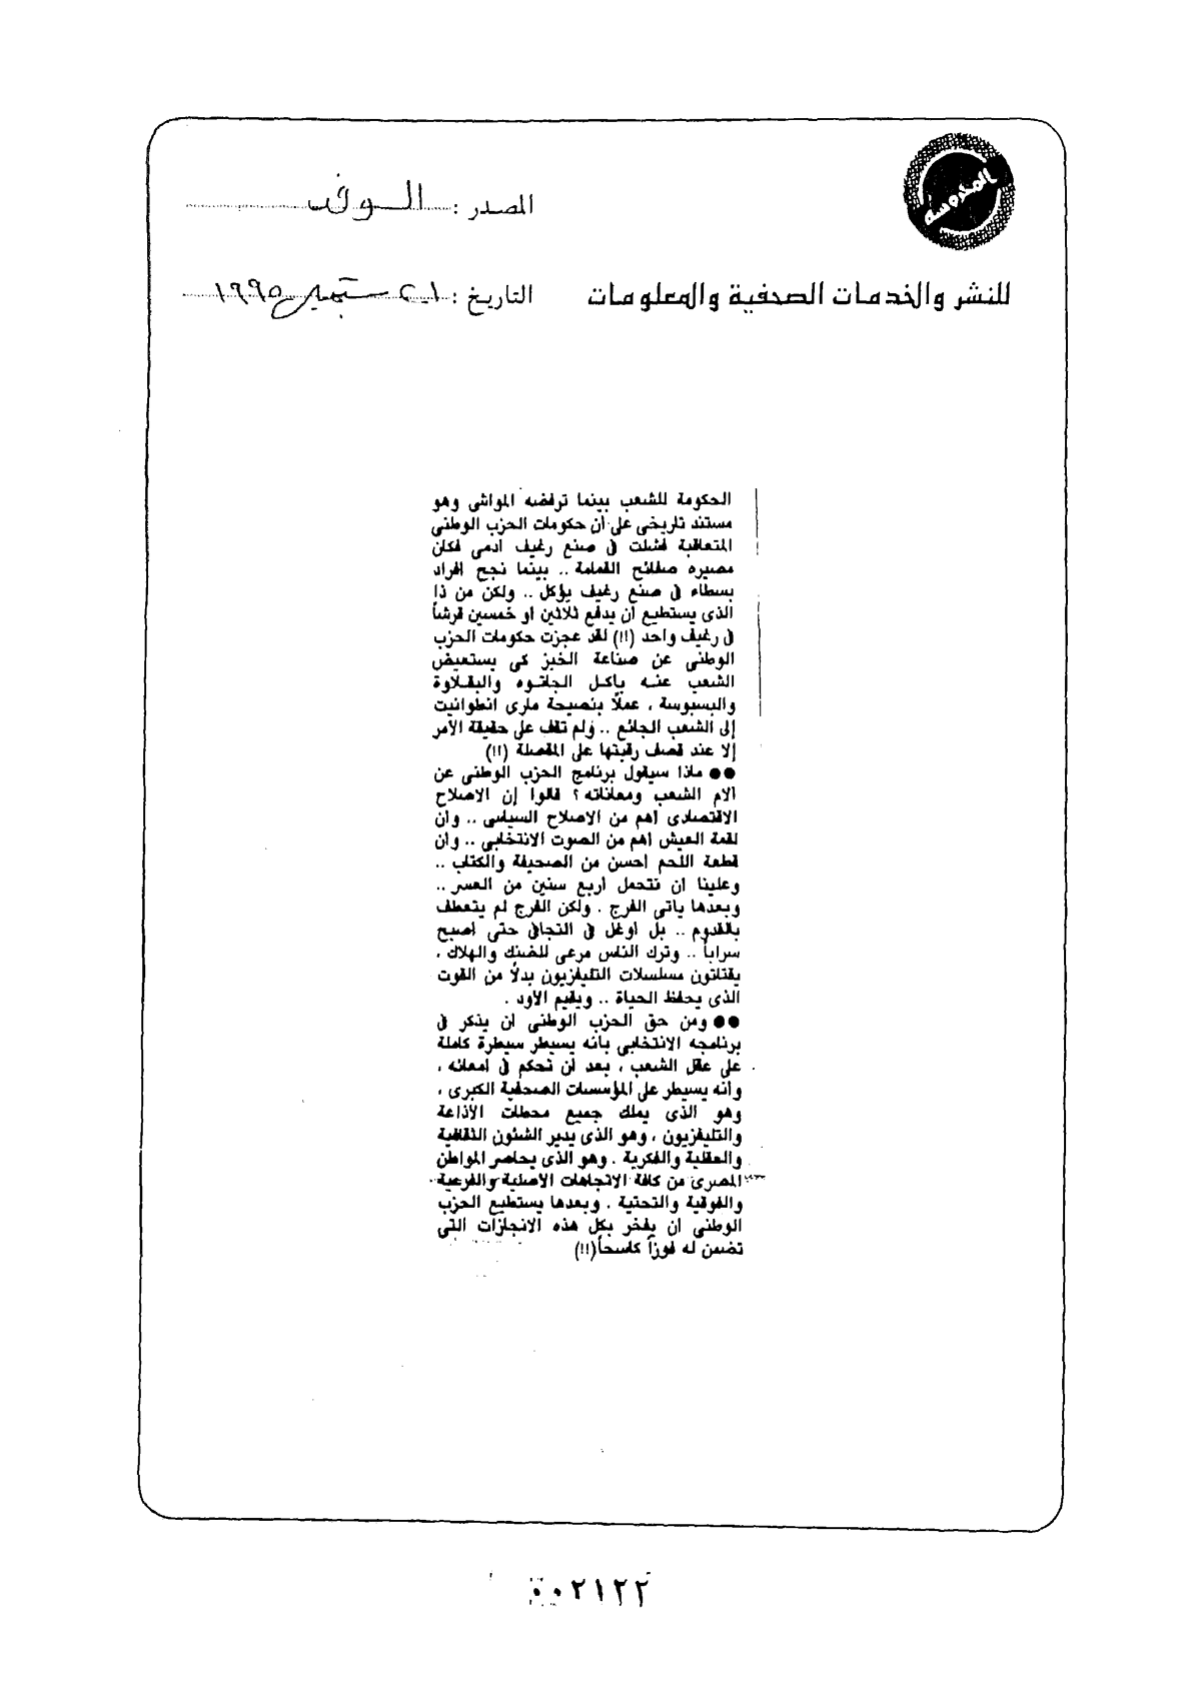 المحروسة
المصدر : الوفد
للنشر والخدمات الصحفية والمعلومات
التاريخ : ٢١ سبتمبر ١٩٩٥
الحكومة للشعب بينما ترفضه المواشى وهو
مستند تاريخى على أن حكومات الحزب الوطنى
المتعاقبة فشلت فى صنع رغيف ادمى فكان
مصيره صفائح القمامة .. بينما نجح افراد
بسطاء فى صنع رغيف يؤكل .. ولكن من ذا
الذى يستطيع ان يدفع ثلاثين او خمسين قرشاً
فى رغيف واحد (!!) لقد عجزت حكومات الحزب
الوطنى عن صناعة الخبز كى يستعيض
الشعب عنه باكل الجاتوه والبقلاوة
والبسبوسة ، عملاً بنصيحة مارى انطوانيت
إلى الشعب الجائع .. ولم تقف على حقيقة الأمر
إلا عند قصف رقبتها على المقصلة (!!)
●● ماذا سيقول برنامج الحزب الوطنى عن
الام الشعب ومعاناته ؟ قالوا إن الاصلاح
الاقتصادى اهم من الاصلاح السياسى .. وان
لقمة العيش اهم من الصوت الانتخابى .. وان
قطعة اللحم احسن من الصحيفة والكتاب ..
وعلينا ان نتحمل اربع سنين من العسر ..
وبعدها ياتى الفرج . ولكن الفرج لم يتعطف
بالقدوم .. بل اوغل فى التجافى حتى اصبح
سراباً .. وترك الناس مرعى للضنك والهلاك ،
يقتاتون مسلسلات التليفزيون بدلاً من القوت
الذى يحفظ الحياة .. ويقيم الأود .
●● ومن حق الحزب الوطنى ان يذكر فى
برنامجه الانتخابى بانه يسيطر سيطرة كاملة
على عقل الشعب ، بعد ان تحكم فى امعائه ،
وانه يسيطر على المؤسسات الصحفية الكبرى ،
وهو الذى يملك جميع محطات الأذاعة
والتليفزيون ، وهو الذى يدير الشئون الثقافية
والعقلية والفكرية . وهو الذى يحاصر المواطن
المصرى من كافة الاتجاهات الأصلية والفرعية
والفوقية والتحتية . وبعدها يستطيع الحزب
الوطنى ان يفخر بكل هذه الانجازات التى
تضمن له فوزاً كاسحاً (!!)
٠٠٢١٢٢